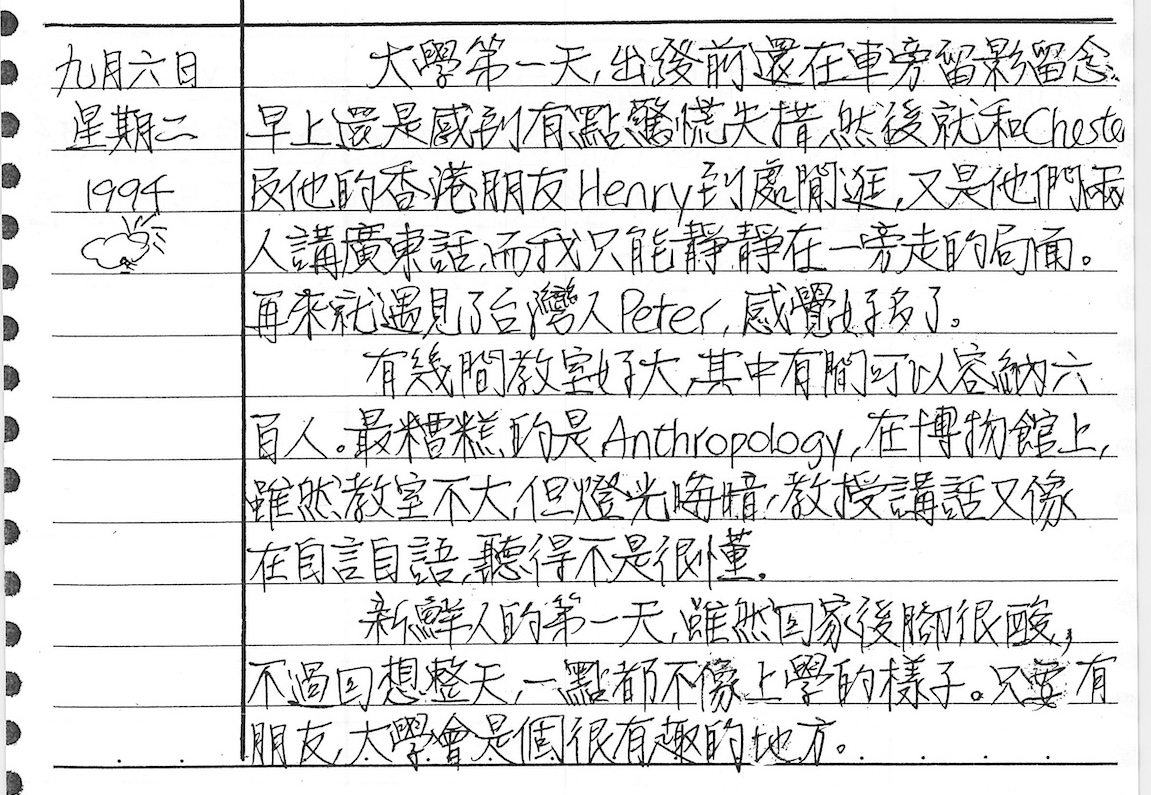 九月六日
星期二
1994
大學第一天,出發前還在車旁留影留念.
早上還是感到有點驚慌失措,然後就和Cheste
及他的香港朋友Henry到處閒逛,又是他們兩
人講廣東話,而我只能靜靜在一旁走的局面。
再來就遇見了台灣人Peter,感覺好多了。
有幾間教室好大,其中有間可以容納六
百人。最糟糕的是Anthropology,在博物館上,
雖然教室不大,但燈光晦暗,教授講話又像
在自言自語,聽得不是很懂.
新鮮人的第一天,雖然回家後腳很酸,
不過回想整天,一點都不像上學的樣子。只要有
朋友,大學會是個很有趣的地方。